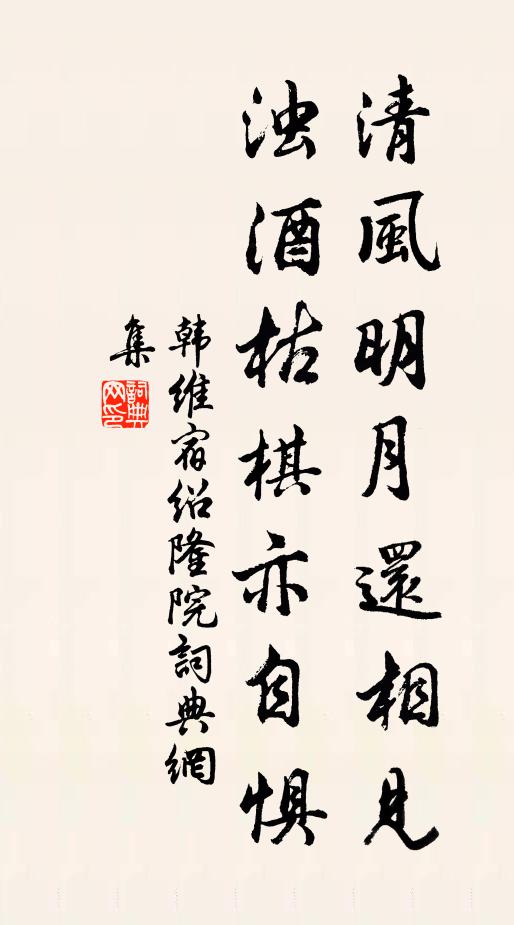 清風明月還相見
浊酒枯棋亦自惧
韩维宿绍隆院詞典網
集
詞典网印